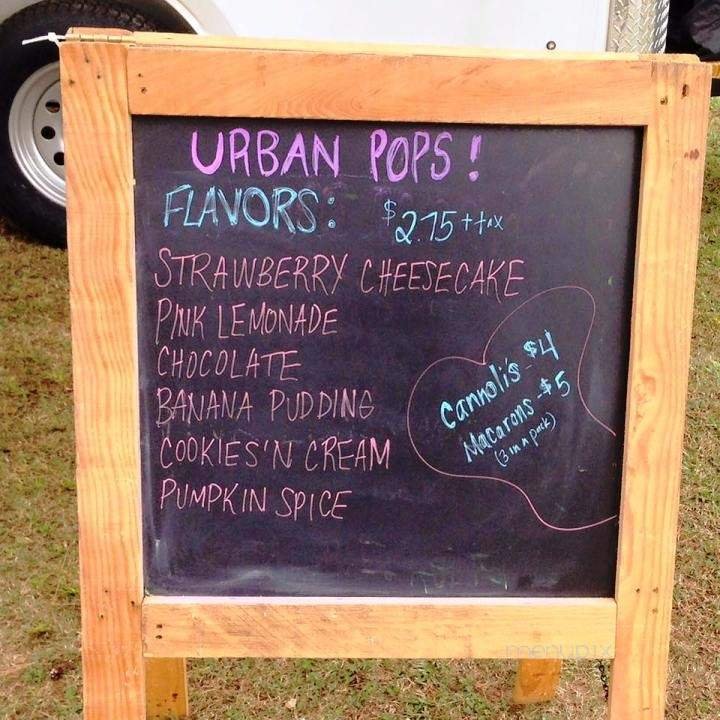 URBAN POPS!
FLAVORS: $2.75 + tax
STRAWBERRY CHEESECAKE
PINK LEMONADE
CHOCOLATE
BANANA PUDDING
COOKIES'N CREAM
PUMPKIN SPICE
Cannoli's - $4
Macarons - $5
(3 in a pack)
menupix